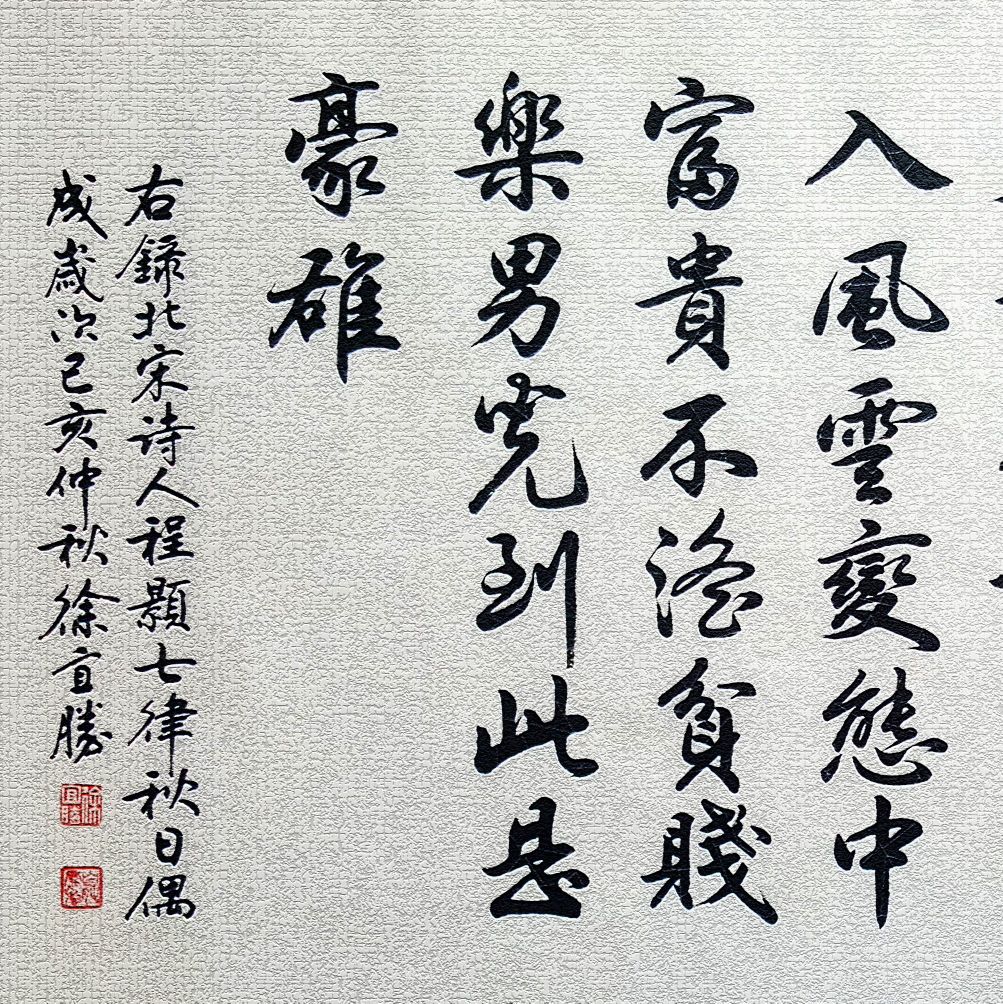 入風雲變態中
富貴不淫貧賤
樂男兒到此是
豪雄
右錄北宋诗人程顥七律秋日偶
成歲次己亥仲秋徐宜勝